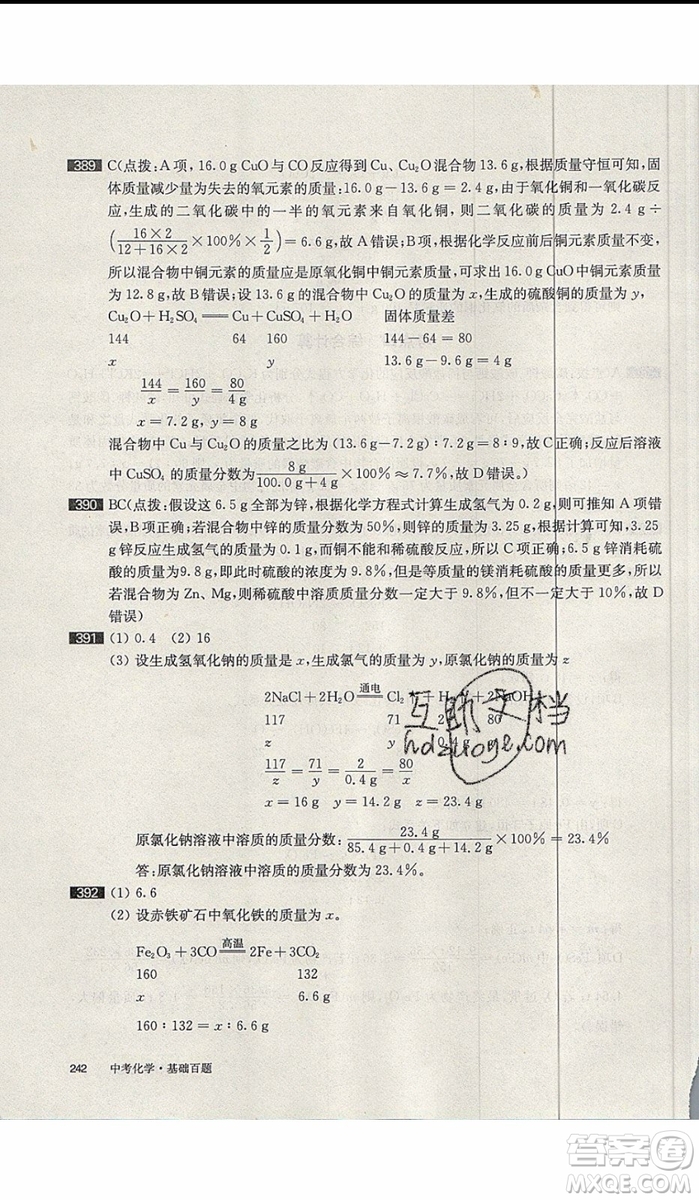 389 C(点拨:A 项,16.0 g CuO 与 CO 反应得到 Cu、Cu₂O 混合物 13.6 g,根据质量守恒可知,固
体质减少量为失去的氧元素的质量:16.0 g-13.6 g=2.4 g,由于氧化铜和一氧化碳反
应,生成的二氧化碳中的一半的氧元素来自氧化铜,则二氧化碳的质量为 2.4 g÷
(16×2/(12+16×2)×100%×1/2)=6.6 g,故 A 错误;B 项,根据化学反应前后铜元素质量不变,
所以混合物中铜元素的质量应是原氧化铜中铜元素质量,可求出 16.0 g CuO 中铜元素的质
量为 12.8 g;设 13.6 g 混合物中 Cu₂O 的质量为 x,生成的硫酸铜的质量为 y,
Cu₂O+H₂SO₄══Cu+CuSO₄+H₂O 固体质量差
144 64 160 144-64=80
x y 13.6 g-9.6 g=4 g
144/x=160/y=80/4 g
x=7.2 g,y=8 g
混合物中 Cu 与 Cu₂O 的质量之比为(13.6 g-7.2 g):7.2 g=8:9,故 C 正确;反应后溶液
中 CuSO₄ 的质量分数为 8 g/(100.0 g+4 g)≈7.7%,故 D 错误。)
390 BC(点拨:假设这 6.5 g 全部为锌,根据化学方程式计算生成氢气为 0.2 g,则可推知 A 项错
误,B 项正确;若混合物中锌的质量分数为 50%,则锌的质量为 3.25 g,根据计算可知,3.25
g 锌反应生成氢气的质量为 0.1 g,而铜不能和稀硫酸反应,C 项正确;6.5 g 锌消耗硫
酸的质量为9.8 g,即此时硫酸的浓度为 9.8%,但是等质量的镁消耗硫酸的质量更多,所以
若混合物为 Zn、Mg,则稀硫酸中溶质质量分数一定大于 9.8%,但不一定大于 10%,故 D
错误)
391 (1) 0.4 (2) 16
(3) 设生成氢氧化钠的质量是 x,生成氯气的质量为 y,原氯化钠的质量为 z
2NaCl+2H₂O══通电══Cl₂+H₂+2NaOH
117 71 2 80
z y 0.4 g x
117/z=71/y=2/0.4 g=80/x
x=16 g y=14.2 g z=23.4 g
原氯化钠溶液中溶质的质量分数:23.4 g/(85.4 g+0.4 g+14.2 g)×100%=23.4%
答:原氯化钠溶液中溶质的质量分数为 23.4%。
392 (1) 6.6
(2) 设赤铁矿石中氧化铁的质量为 x。
Fe₂O₃+3CO══高温══2Fe+3CO₂
160 132
x 6.6 g
160:132=x:6.6 g
242 中考化学·基础百题
互助文档
hdzuoye.com
答案圈
MXQE.COM